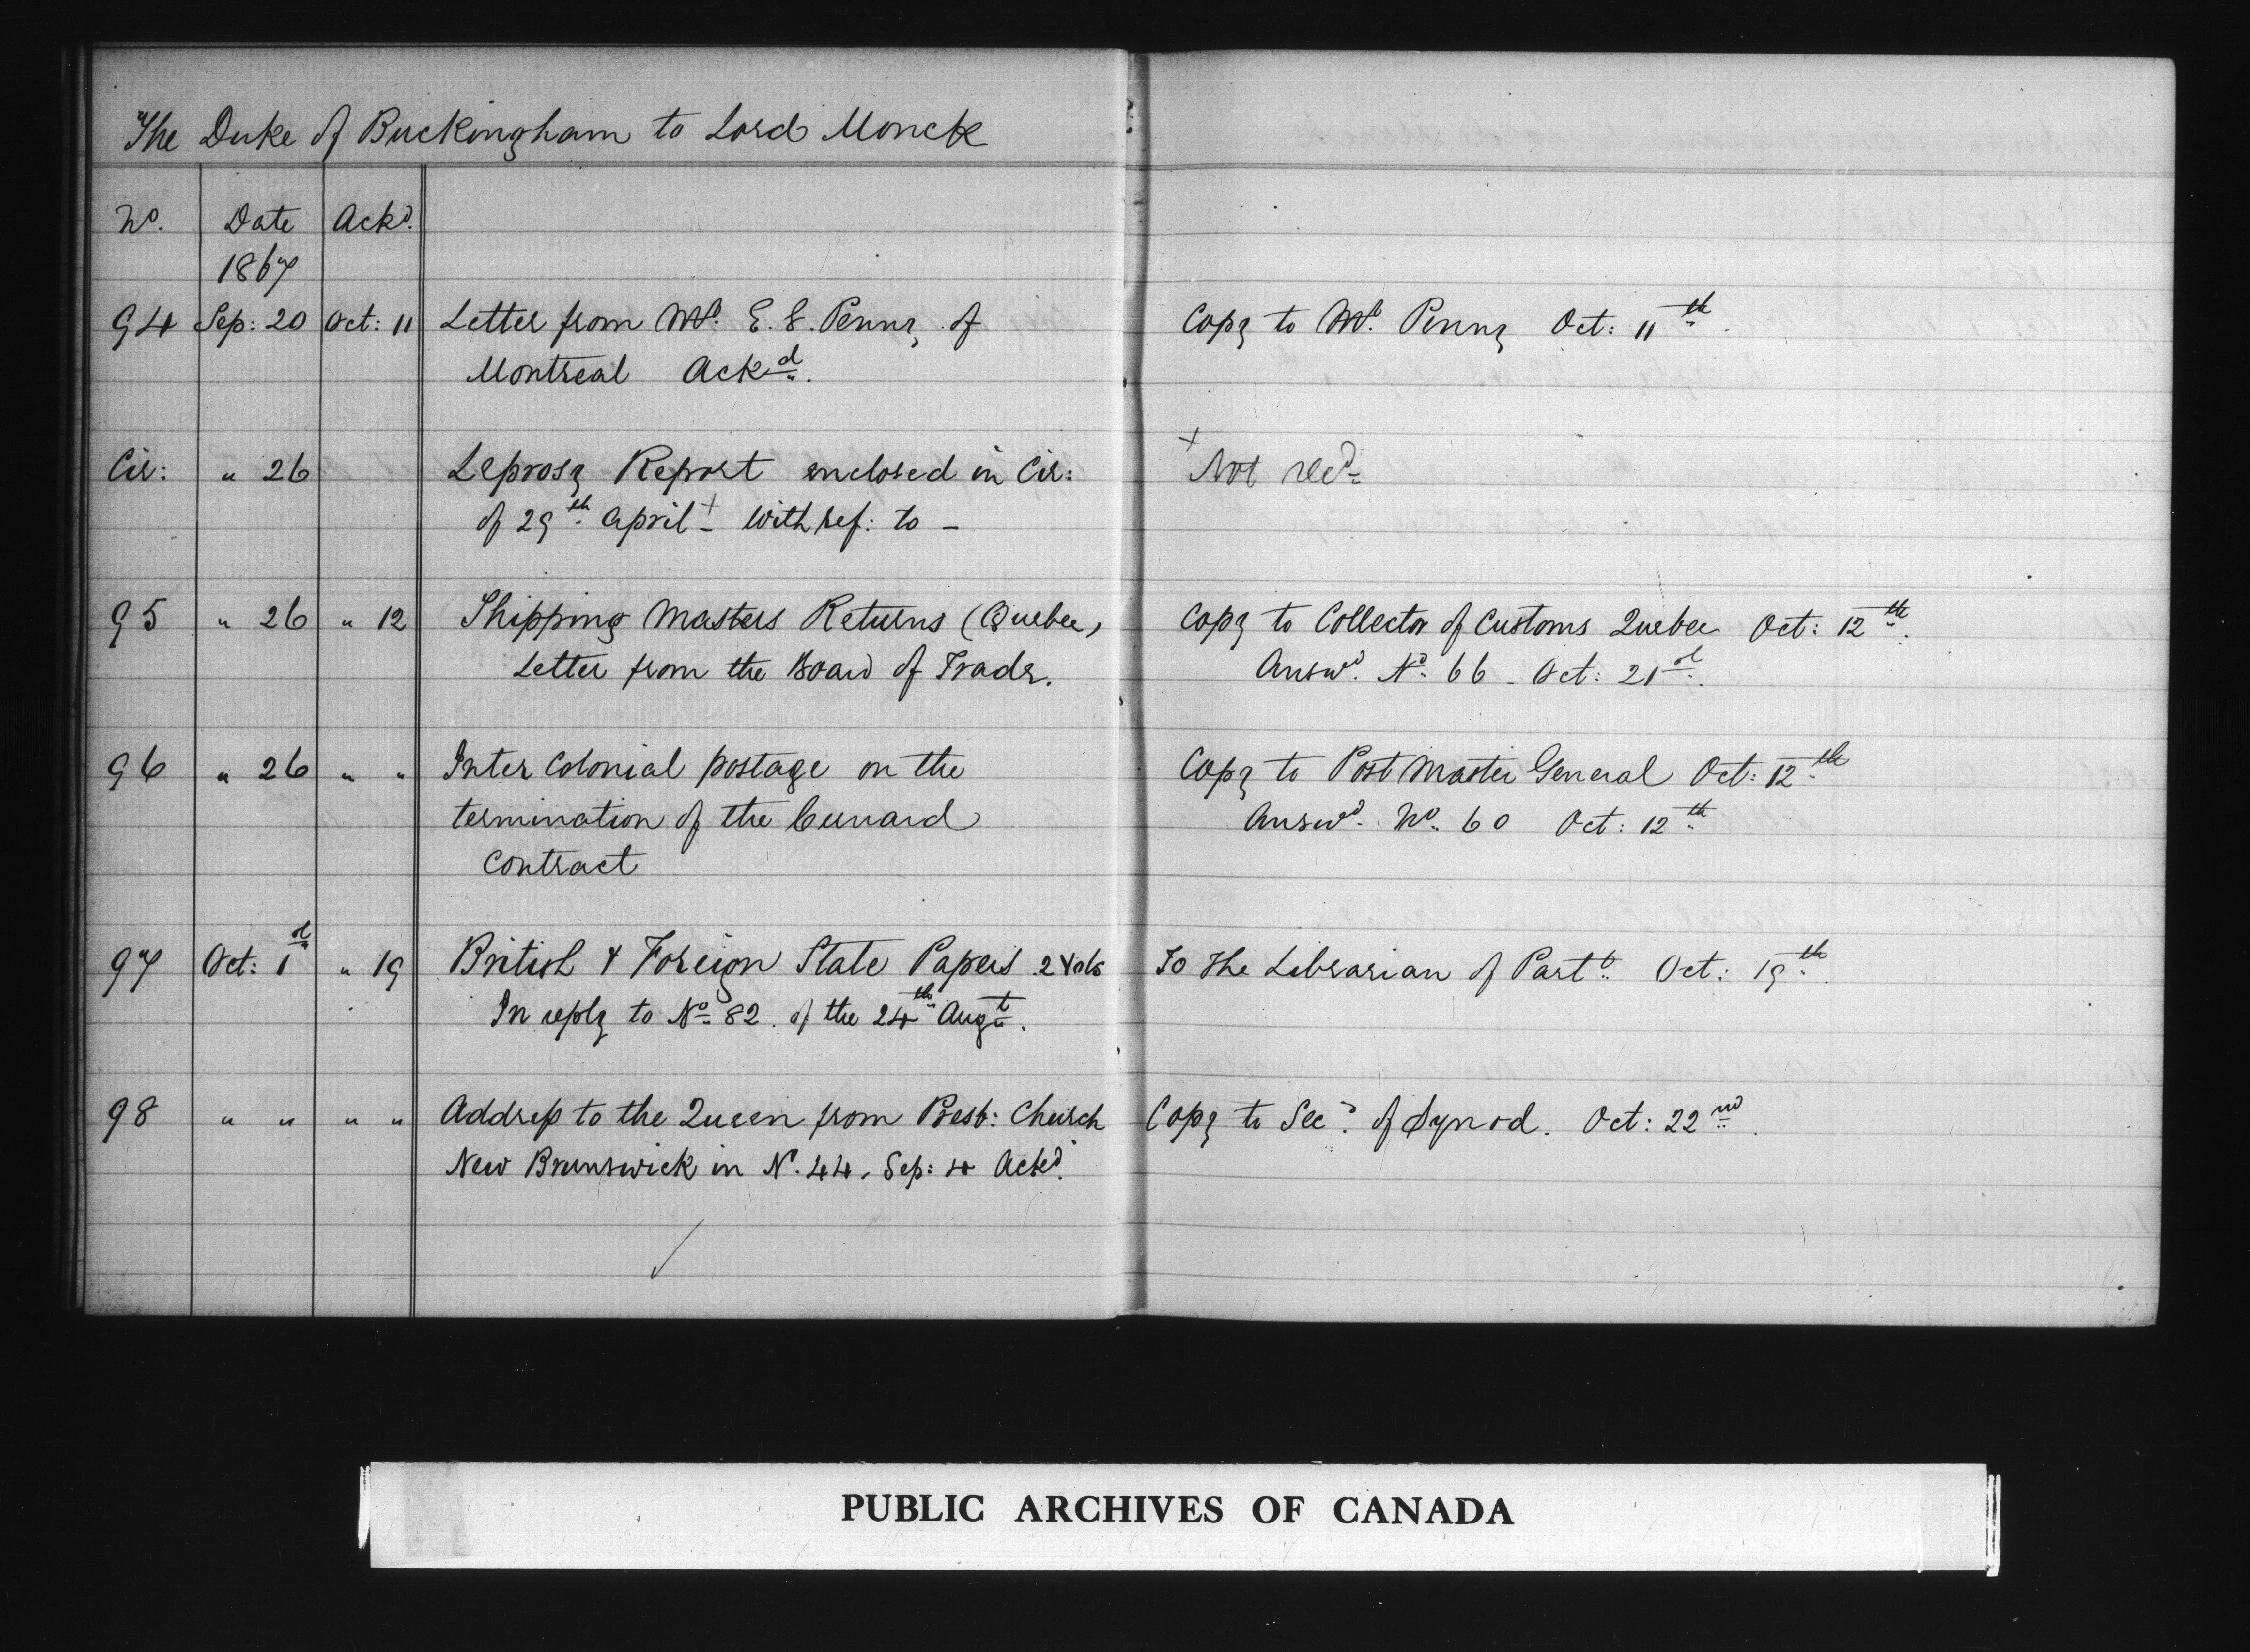 The Duke of Buckingham to Lord Monck
No. Date Ackd.
1867
94 Sep: 20 Oct: 11 Letter from Mr. E. G. Penny of Copy to Mr. Penny Oct: 11th.
Montreal Ackd.
Cir: " 26 Leprosy Report enclosed in Cir: + Not recd.
of 29th April + With ref: to –
95 " 26 " 12 Shipping Masters Returns (Quebec) Copy to Collector of Customs Quebec Oct: 12th.
Letter from the Board of Trade. Answd. No. 66 – Oct: 21st.
96 " 26 " " Inter Colonial postage on the Copy to Post Master General Oct: 12th
termination of the Cunard Answd. No. 60 Oct: 12th
Contract
97 Oct: 1st " 19 British & Foreign State Papers 2 Vols To The Librarian of Parlt. Oct: 19th.
In reply to No. 82. of the 24th Augt.
98 " " " " Address to the Queen from Presb: Church Copy to Secy. of Synod. Oct: 22nd.
New Brunswick in No. 44. Sep: 4 Ackd.
PUBLIC ARCHIVES OF CANADA